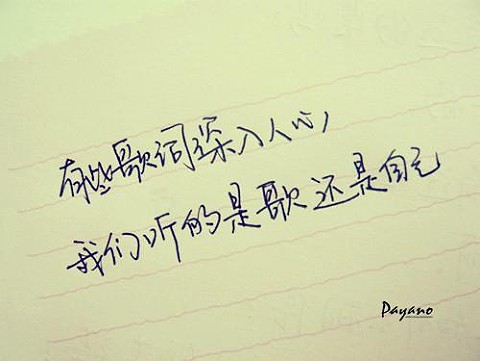 有些歌词深入人心,
我们听的是歌还是自己
Payano